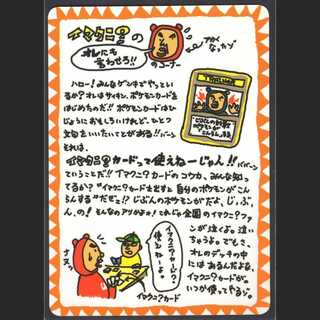 イマクニ?の
オレにも
言わせろ!!
のコーナー
TRAINER
ハロー!みんなゲンキでやってい
るか?オレはサイキン、ポケモンカードを
はじめたのだ!!ポケモンカードはひ
じょうにおもしろいけれど、ひとつ
文句をいいたいことがある!!ババーン
それは、
イマクニ?カードって使えねーじゃん!!ババババーン
ていうことだ!!イマクニ?カードのコウカ、みんな知っ
てるか?"イマクニ?カードを出すと自分のポケモンがこん
らんする"だぜ!?じぶんのポケモンがだよ、じ、ぶ、
ん、の!そんなのアリかよォ!これじゃ全国のイマクニ?ファ
ンが泣くよ。泣い
ちゃうよ。でもさ、
オレのデッキの中
には あるんだよな、
イマクニ?カードが。
いつか使ってやるゾ。
イマクニ?カード?
使えねーよ。
イマクニ?カード